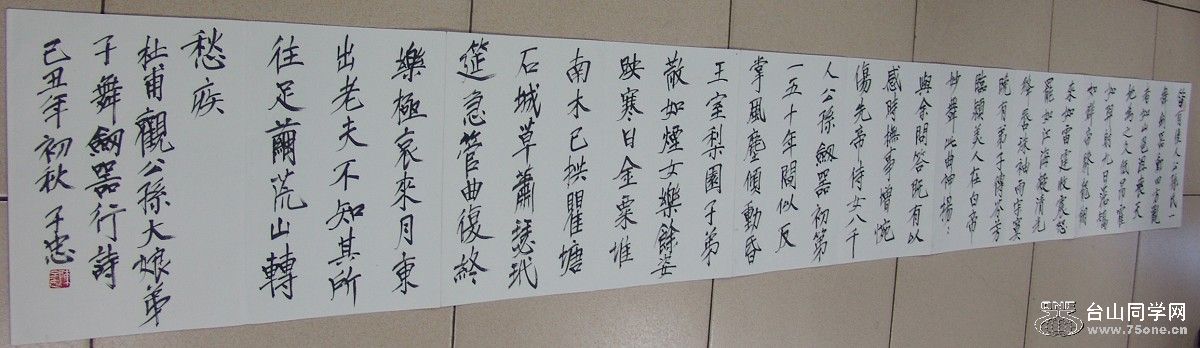 昔有佳人公孫氏一
舞劍器動四方觀
者如山色沮喪天
地為之久低昂㸌
如羿射九日落矯
如群帝驂龍翔
來如雷霆收震怒
罷如江海凝清光
絳唇珠袖兩寂寞
晚有弟子傳芬芳
臨潁美人在白帝
妙舞此曲神揚:
與余問答既有以
感時撫事增惋
傷先帝侍女八千
人公孫劔器初第
一五十年間似反
掌風塵傾動昏
王室梨園子弟
散如煙女樂餘姿
映寒日金粟堆
南木已拱瞿塘
石城草蕭瑟玳
筵急管曲復終
樂極哀來月東
出老夫不知其所
往足繭荒山轉
愁疾
杜甫觀公孫大娘弟
子舞劔器行詩
己丑年初秋子忠
台山同学网
www.75one.cn